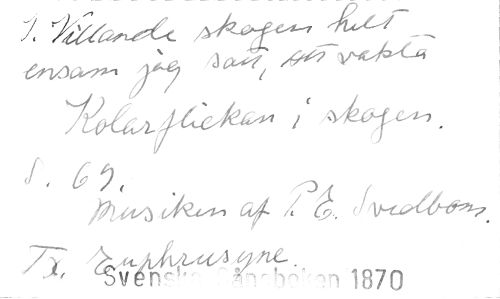 I. Villande skogen helt
ensam jag satt, att vakta
Kolarflickan i skogen.
S. 69.
Musiken af P. E. Svedbom.
Tx. Euphrosyne.
Svenska Sångboken 1870